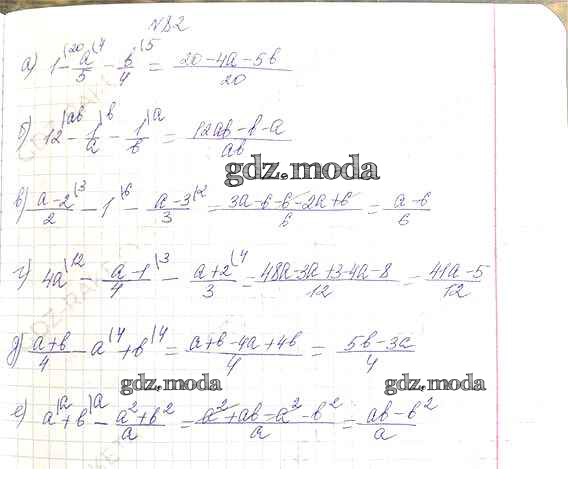 №82
а) 1^{(20} - a/5^{(4} - b/4^{(5} = (20-4a-5b)/20
б) 12^{(ab} - 1/a^{)b} - 1/b^{(a} = (12ab-b-a)/ab
gdz.moda
в) (a-2)/2^{(3} - 1^{(6} - (a-3)/3^{(2} = (3a-6-6-2a+6)/6 = (a-6)/6
г) 4a^{(12} - (a-1)/4^{(3} - (a+2)/3^{(4} = (48a-3a+3-4a-8)/12 = (41a-5)/12
д) (a+b)/4 - a^{(4} + b^{(4} = (a+b-4a+4b)/4 = (5b-3a)/4
gdz.moda gdz.moda
е) a^{(a} + b^{)a} - (a²+b²)/a = (a²+ab-a²-b²)/a = (ab-b²)/a